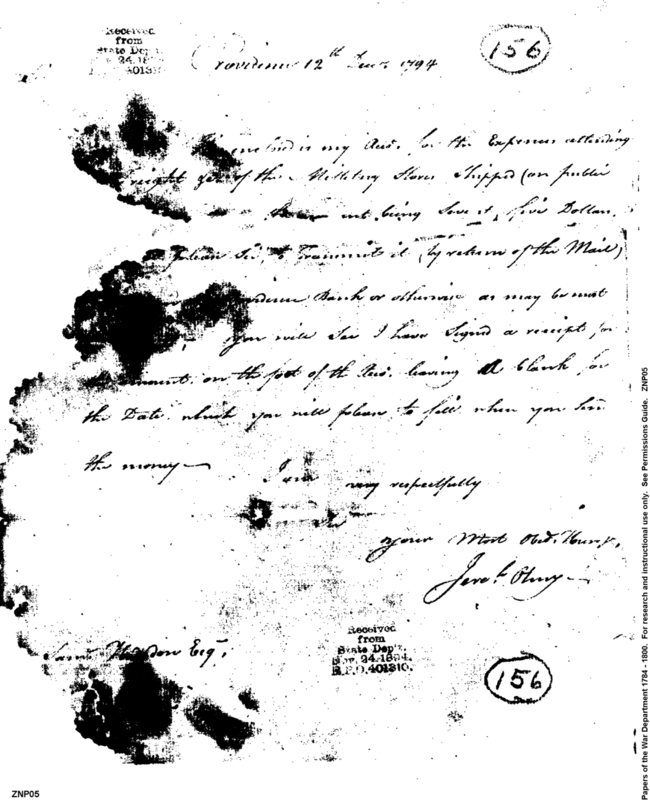 Received
from
State Dep't.
24, 18
401310
156
Providence 12th Decr 1794
enclosed is my Acct. for the Expences attending
freight &c of the Military Stores Shipped (on public
not being Sent it, five Dollars
please Sir, to Transmit it (by return of the Mail)
Providence Bank or otherwise as may be most
you will See I have Signed a receipt for
the amount, on the foot of the Acct. leaving a blank for
the Date, which you will please to fill when you Send
the money —
I am very respectfully
Sir
Your Most Obed. Hum
Jereh. Olney
Saml Hodgdon Esqr.
Received
from
State Dep't.
Nov. 24, 1894.
R.P.O. 401310.
156
ZNP05
Papers of the War Department 1784 - 1800. For research and instructional use only. See Permissions Guide. ZNP05